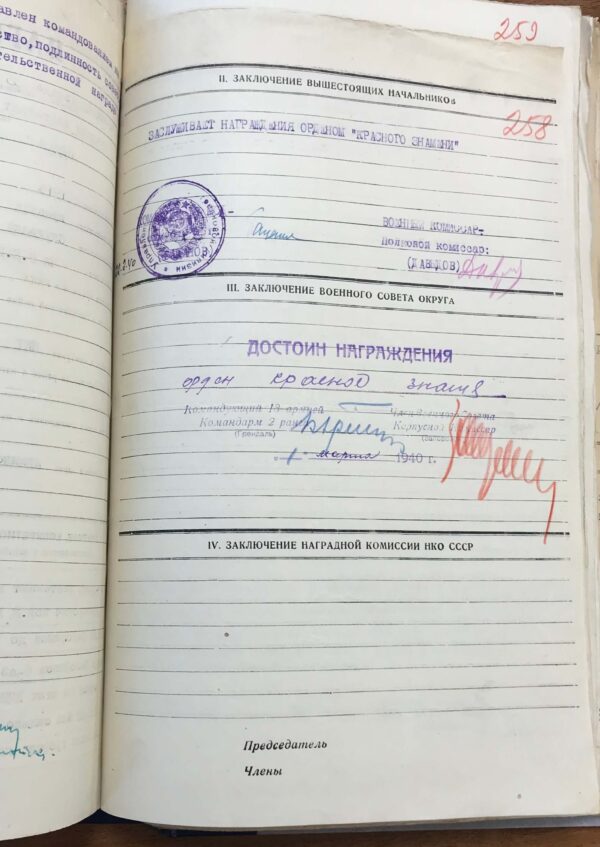 авлен командованием
ство, подлинность
тельственной награды
259
II. ЗАКЛЮЧЕНИЕ ВЫШЕСТОЯЩИХ НАЧАЛЬНИКОВ
258
ЗАСЛУЖИВАЕТ НАГРАЖДЕНИЯ ОРДЕНОМ "КРАСНОГО ЗНАМЕНИ"
ВОЕННЫЙ КОМИССАР-
Полковой комиссар:
III. ЗАКЛЮЧЕНИЕ ВОЕННОГО СОВЕТА ОКРУГА
ДОСТОИН НАГРАЖДЕНИЯ
орден красное знамя
Командующий 13 армией
Командарм 2 ранга
(Грендаль)
Член Военного Совета
Корпусной Комиссар
марта 1940 г.
IV. ЗАКЛЮЧЕНИЕ НАГРАДНОЙ КОМИССИИ НКО СССР
Председатель
Члены